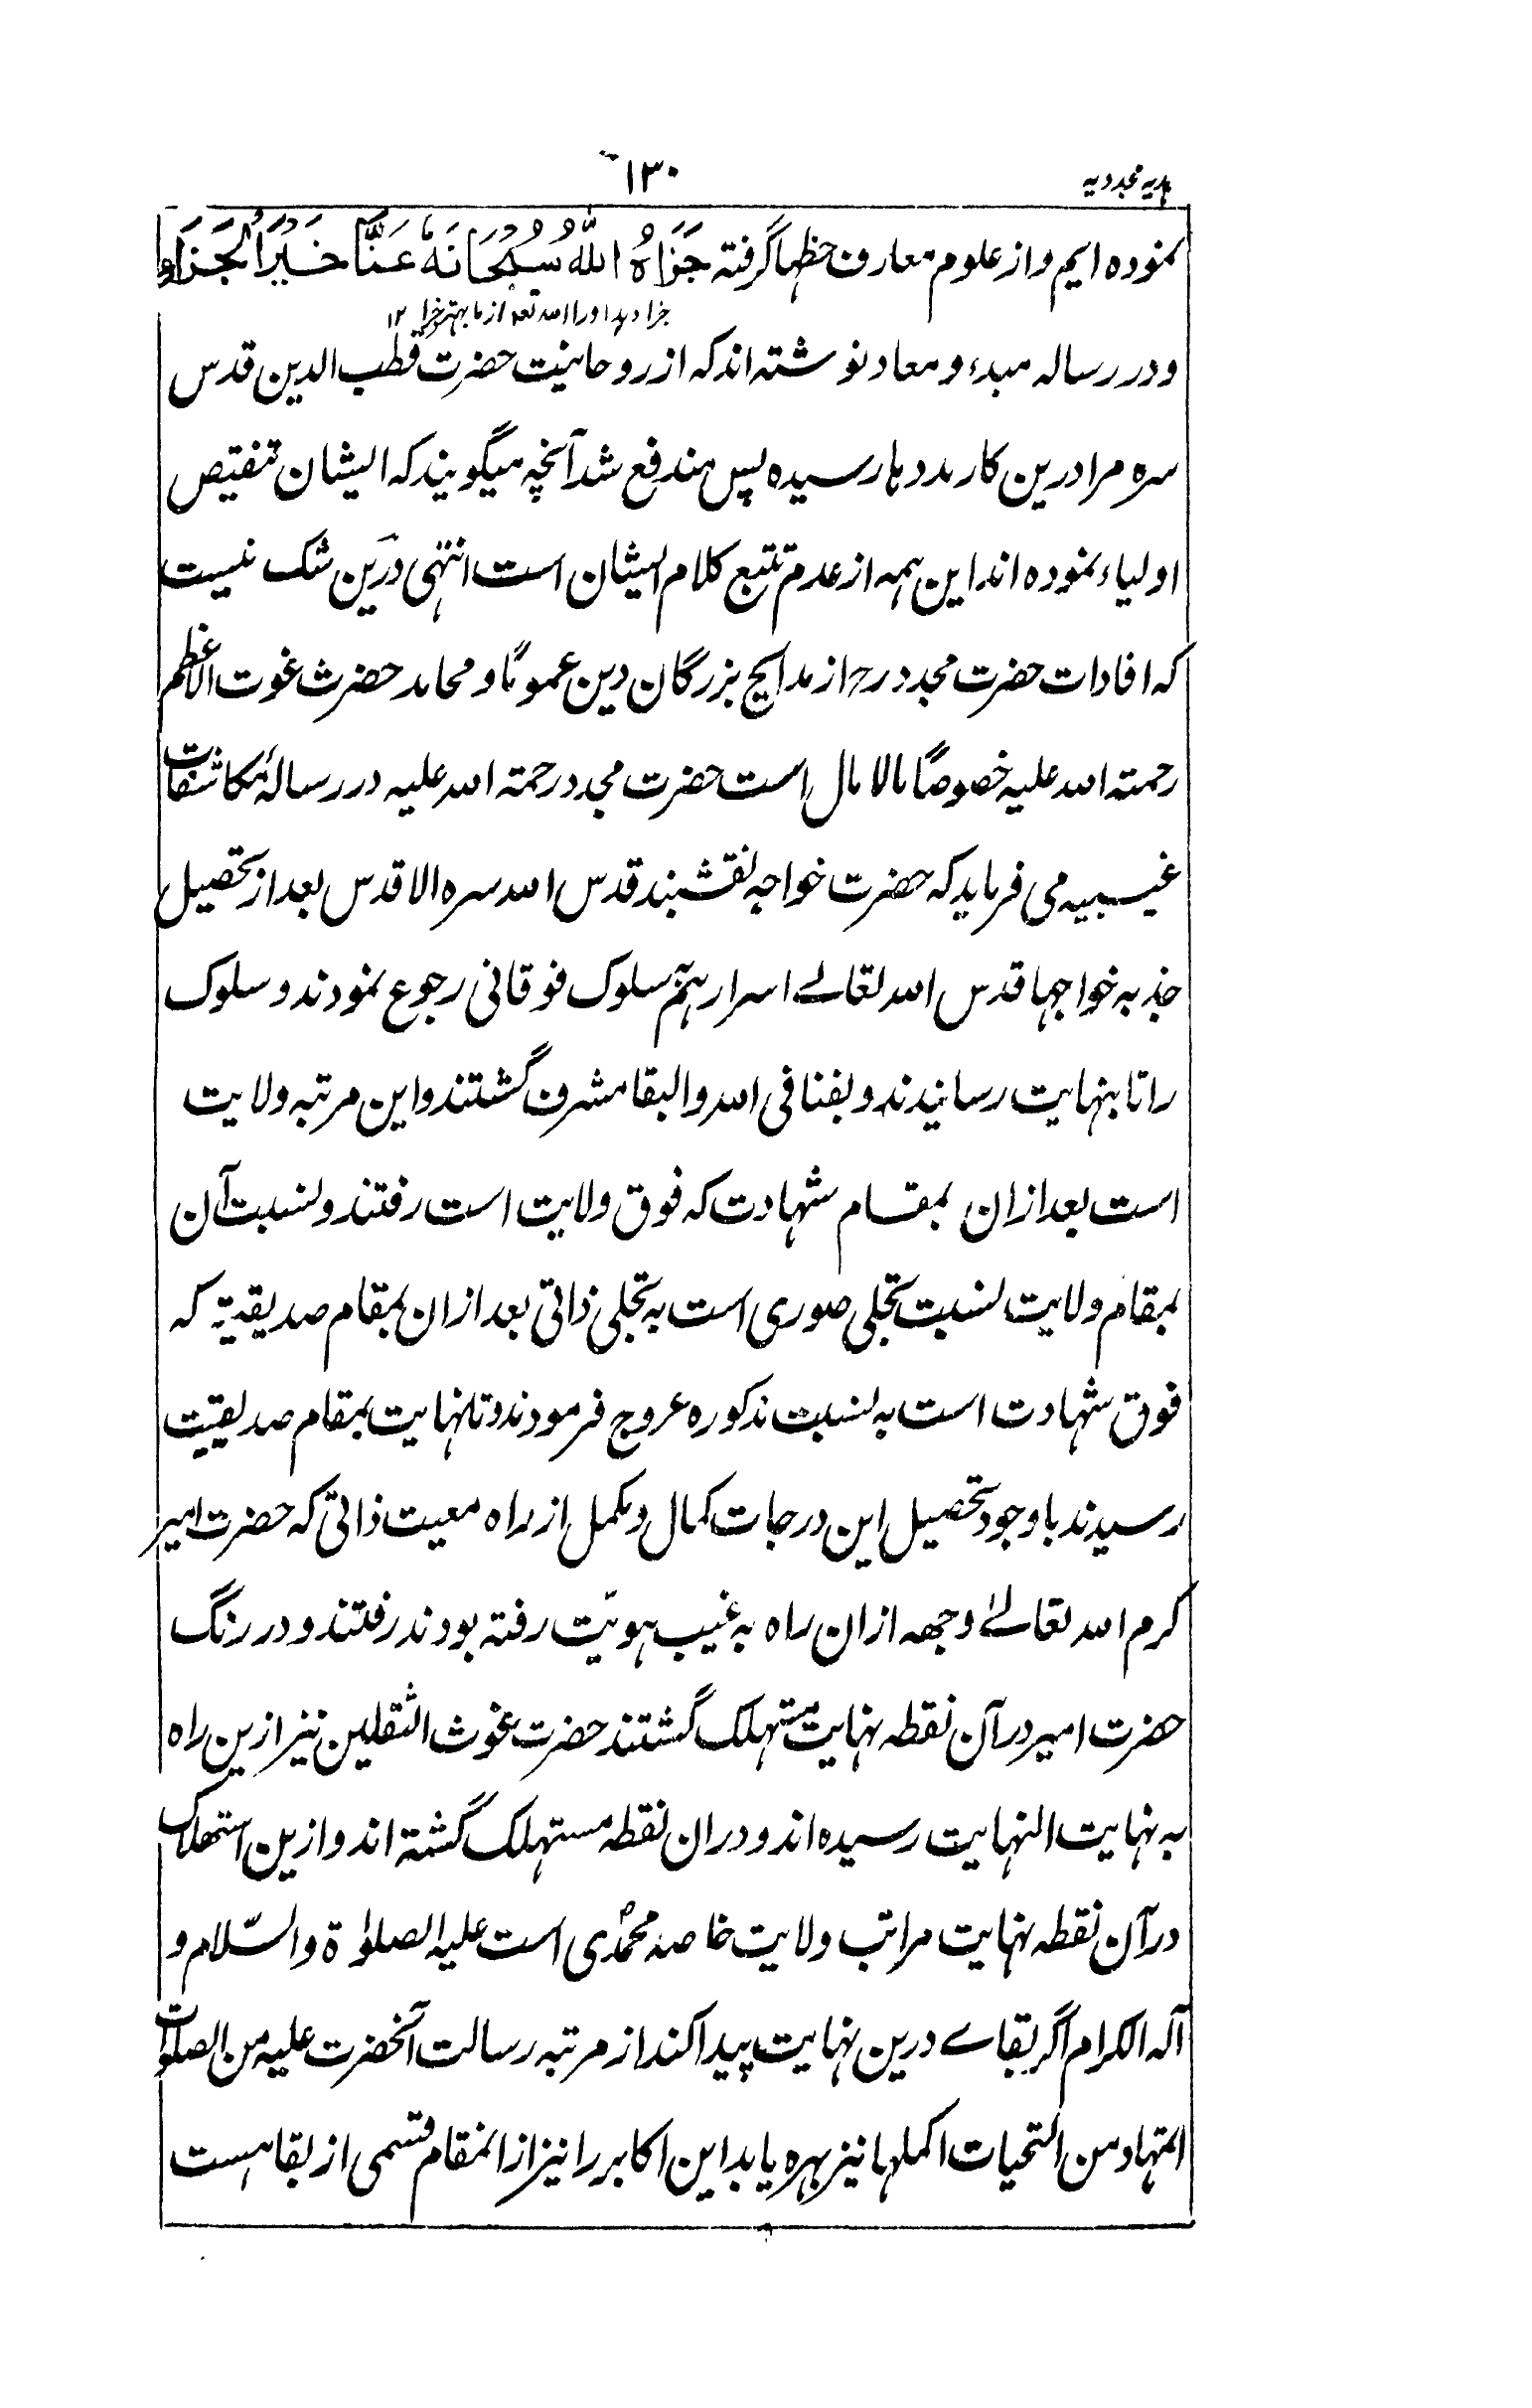 ہدیہ مجددیہ
۱۳۰
نموده ایم و از علوم معارف حظہا گرفتہ جَزَاہُ اللّٰہُ سُبْحَانَہٗ عَنَّا خَیْرَ الْجَزَاء و
جزا دہد اورا اللہ تعہ از ما بہتر جزا ۱۲
و در رسالہ مبدء و معاد نوشتہ اند کہ از روحانیت حضرت قطب الدین قدس
سرہ مرا درین کار مددہا رسیدہ پس مندفع شد آنچہ میگویند کہ ایشان تنقیص
اولیاء نمودہ اند این ہمہ از عدم تتبع کلام ایشان است انتہی درین شک نیست
کہ افادات حضرت مجدد رح از مدایح بزرگان دین عموماً و محامد حضرت غوث الاعظم
رحمتہ اللہ علیہ خصوصاً مالامال است حضرت مجدد رحمتہ اللہ علیہ در رسالۂ مکاشفات
غیبیہ می فرماید کہ حضرت خواجہ نقشبند قدس اللہ سرہ الاقدس بعد از تحصیل
جذبہ خواجہا قدس اللہ تعالے اسرارہم سلوک فوقانی رجوع نمودند و سلوک
را تا بنہایت رسانیدند و بفنا فی اللہ والبقا مشرف گشتند و این مرتبہ ولایت
است بعد ازان بمقام شہادت کہ فوق ولایت است رفتند و نسبت آن
بمقام ولایت نسبت تجلی صوری است بہ تجلی ذاتی بعد ازان بمقام صدیقیۃ کہ
فوق شہادت است بہ نسبت مذکورہ عروج فرمودند و تا نہایت بمقام صدیقیت
رسیدند با وجود تحصیل این درجات کمال و مکمل از راہ معیت ذاتی کہ حضرت امیر
کرم اللہ تعالےٰ وجہہ ازان راہ بہ غیب ہویّت رفتہ بودند رفتند و در رنگ
حضرت امیر در آن نقطہ نہایت مستہلک گشتند حضرت غوث الثقلین نیز ازین راہ
بہ نہایت النہایت رسیدہ اند و دران نقطہ مستہلک گشتہ اند و ازین استھلاک
در آن نقطہ نہایت مراتب ولایت خاصہ محمدی است علیہ الصلوٰۃ والسّلام و
آلہ الکرام اگر بقاے درین نہایت پیدا کند از مرتبہ رسالت آنحضرت علیہ من الصلوات
اتمہا و من التحیات اکملہا نیز بہرہ یابد این اکابر را نیز از انمقام قسمی از بقا ہست